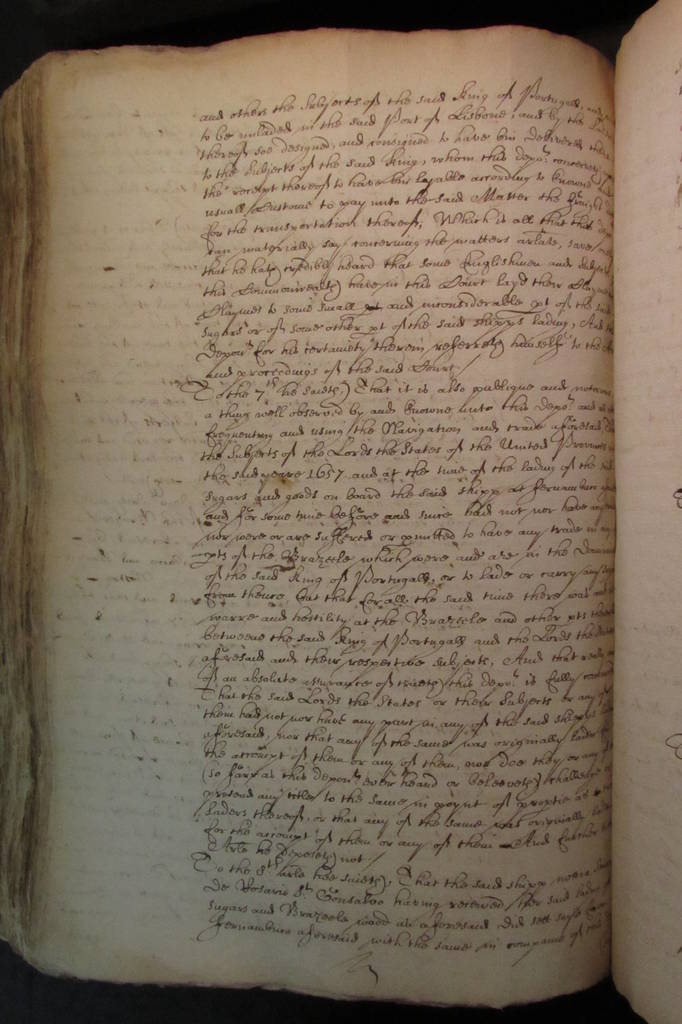 and others the Subjects of the said King of Portugall, and
to be unladed in the said Port of Lisbone, and by the
thereof soe designed, and consigned to have bin delivered
to the Subjects of the said King, whom this depot conceaveth
the receipt thereof to have bin lyable according to knowne
usuall Custome to pay unto the said Master the
for the transportation thereof, Which is all that this
can materially say concerning the matters arlate, save
that he hath credibly heard that some Englishmen and
this Commonwealth have in this Court layd their
Claymes to some small pt and inconsiderable pt of the
sugars or of some other pt of the said shipps lading, And
Depont for his certainety therein referreth himselfe to the
and proceedings of the said Court /
To the 7th he saieth That it is also publique and
a thing well observed by and knowne unto this depot and
frequenting and using the Navigation and trade aforesaid
the Subjects of the Lords the States of the United Provinces
the said yeare 1657 and at the time of the lading of the
sugars and goods on board the said shipp at fernambuco
and for some time before and since had not nor have
nor were or are suffered or pmitted to have any trade in
pts of the Brazeele which were and are in the
of the said King of Portugall, or to lade or carry any
from thence but that for all the said time there was
warre and hostility at the Brazeele and other pts
betweene the said King of Portugall and the Lords the
aforesaid and their respective subjects, And that
of an absolute assurance of this depot is fully
That the said Lords the States or their Subjects or any of
them had not nor have any part in any of the said shipps
aforesaid, nor that any of the same was originally laden
the accompt of them or any of them, nor doe they or any
(so farr as this depont ever heard or beleeveth) challenge
pretend any title to the same in poynt of proptie
laders thereof, or that any of the same was originally
for the accompt of them or any of them And further
Arle he deposeth not /
To the 8th arle hee saieth, That the said shipp
De Rosario St Gonsaloo having received her said
sugars and Brazeele wood as aforesaid did set sayle
fernambuco aforesaid with the same in companie of